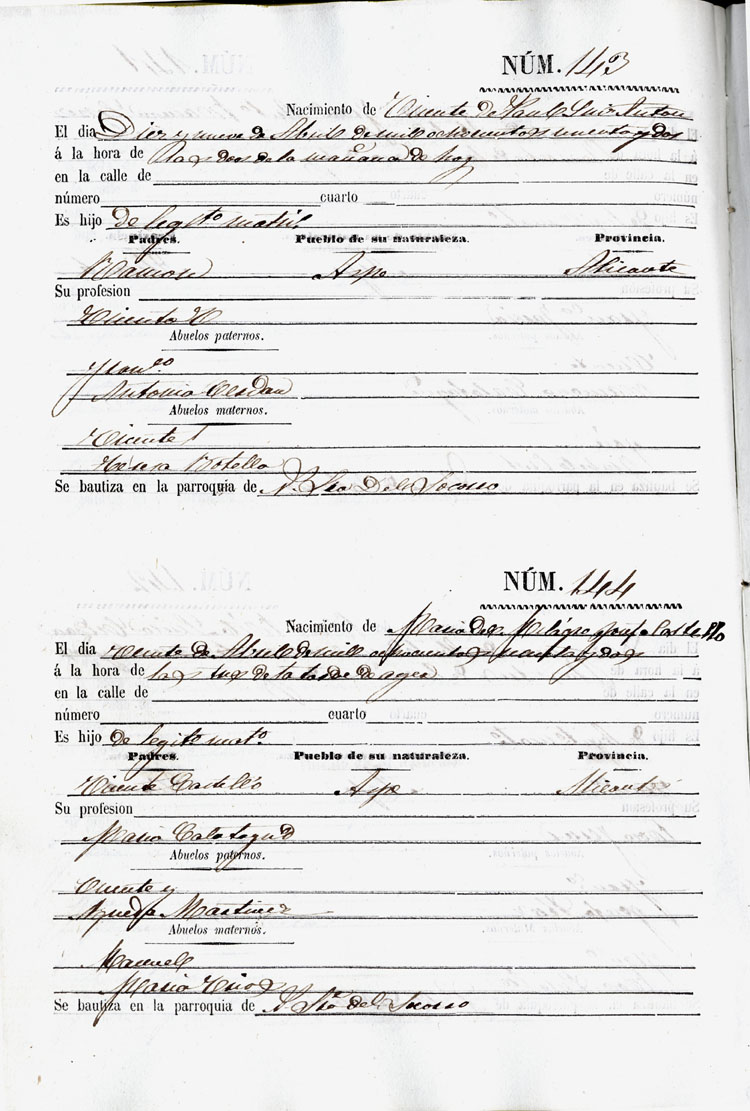 NÚM. 143
Nacimiento de Vicente de Paul
El dia Diez y nueve de Abril de mil ochocientos y dos
á la hora de las dos de la mañana de hoy
en la calle de
número cuarto
Es hijo de legito matri.
Padres. Pueblo de su naturaleza. Provincia.
Ramon Aspe Alicante
Su profesion
Vicenta
Abuelos paternos.
Antonia Cerdan
Abuelos maternos.
Vicente
Teresa Botella
Se bautiza en la parroquia de N. Sra del Socorro
NÚM. 144
Nacimiento de Maria del Milagro Castelló
El dia veinte de Abril de mil ochocientos y dos
á la hora de las tres de la tarde de ayer
en la calle de
número cuarto
Es hijo de legito mato.
Padres. Pueblo de su naturaleza. Provincia.
Vicente Castelló Aspe Alicante
Su profesion
Maria Calatayud
Abuelos paternos.
Vicente y
Martinez
Abuelos maternos.
Manuel
Maria
Se bautiza en la parroquia de N. Sra del Socorro